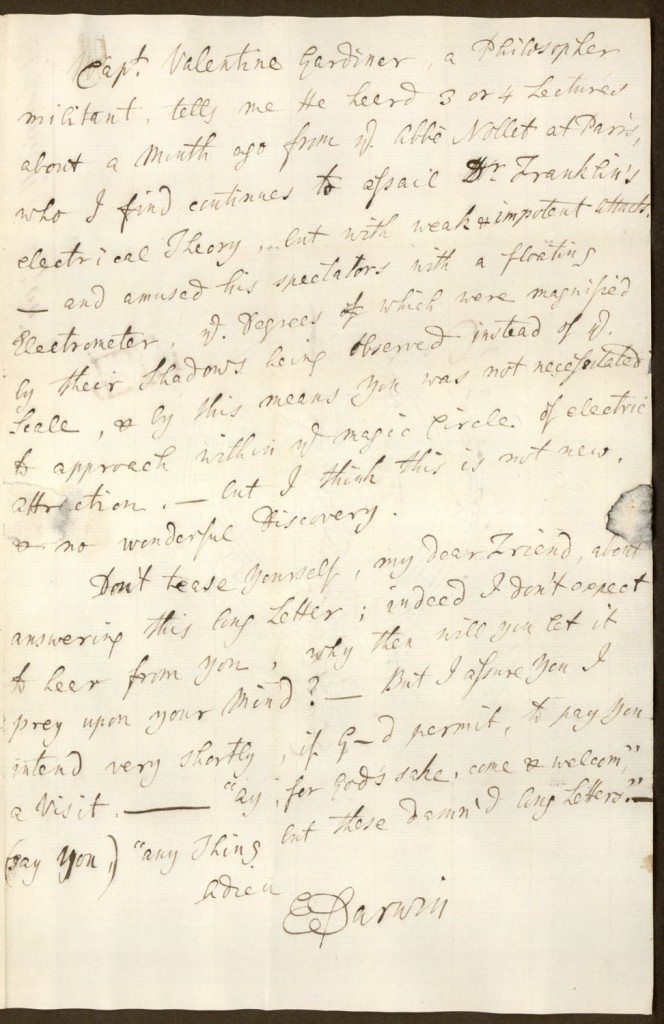 Capt. Valentine Gardiner, a Philosopher
militant, tells me He heard 3 or 4 Lectures
about a Month ago from yᵉ. Abbè Nollet at Paris,
who I find continues to assail Dr. Franklin's
electrical Theory, but with weak & impotent attacks.
— and amused his spectators with a floating
Electrometer, yᵉ. Degrees of which were magnified
by their Shadows being observed instead of yᵉ.
Scale, & by this means you was not necessitated
to approach within yᵉ magic Circle of electric
attraction. — but I think this is not new,
& no wonderful Discovery.
Don't tease yourself, my dear Friend, about
answering this long Letter; indeed I don't expect
to hear from you, why then will you let it
prey upon your Mind? — But I assure you I
intend very shortly, if G–d permit, to pay you
a Visit. —— "ay, for God's sake, come & welcom,"
(say you,) "any Thing but these damn'd long Letters." —
Adieu
E Darwin